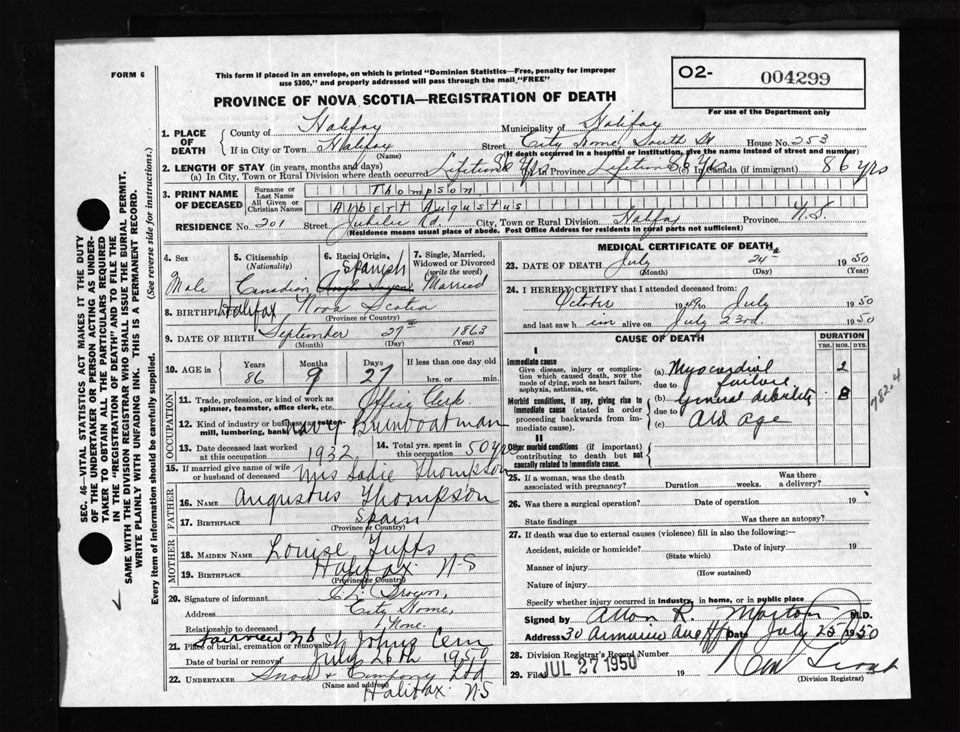 FORM 6
This form if placed in an envelope, on which is printed "Dominion Statistics—Free, penalty for improper
use $300," and properly addressed will pass through the mail "FREE"
O2- 004299
For use of the Department only
PROVINCE OF NOVA SCOTIA—REGISTRATION OF DEATH
1. PLACE OF DEATH
County of Halifax Municipality of Halifax
If in City or Town Halifax Street City Home, South St House No. 253
(Name) (If death occurred in a hospital or institution, give the name instead of street and number)
2. LENGTH OF STAY (in years, months and days)
(a) In City, Town or Rural Division where death occurred Lifetime 86 yrs (b) In Province Lifetime 86 yrs (c) In Canada (if immigrant) 86 yrs
3. PRINT NAME OF DECEASED
Surname or Last Name Thompson
All Given or Christian Names Augustus
RESIDENCE No. 201 Street Jubilee Rd. City, Town or Rural Division Halifax Province N.S.
(Residence means usual place of abode. Post Office Address for residents in rural parts not sufficient)
4. Sex Male
5. Citizenship (Nationality) Canadian
6. Racial Origin Spanish
7. Single, Married, Widowed or Divorced (write the word) Married
8. BIRTHPLACE Halifax Nova Scotia
(Province or Country)
9. DATE OF BIRTH September 27th 1863
(Month) (Day) (Year)
10. AGE in Years 86 Months 9 Days 27 If less than one day old
hrs. or min.
OCCUPATION
11. Trade, profession, or kind of work as spinner, teamster, office clerk, etc. Office Clerk
12. Kind of industry or business
mill, lumbering, bank Bumboatman
13. Date deceased last worked at this occupation 1932
14. Total yrs. spent in this occupation 50 yrs
15. If married give name of wife or husband of deceased Mrs Sadie Thompson
FATHER
16. NAME Augustus Thompson
17. BIRTHPLACE Spain
(Province or Country)
MOTHER
18. MAIDEN NAME Louise Tufts
19. BIRTHPLACE Halifax N-S
(Province or Country)
20. Signature of informant
Address City Home,
Relationship to deceased None.
21. Place of burial, cremation or removal Fairview NS St Johns Cem
Date of burial or removal July 26th 1950
22. UNDERTAKER Snow & Company Ltd
(Name and address) Halifax NS
MEDICAL CERTIFICATE OF DEATH
23. DATE OF DEATH July 24th 1950
(Month) (Day) (Year)
24. I HEREBY CERTIFY that I attended deceased from:
October 1949 to July 1950
and last saw h im alive on July 23rd. 1950
CAUSE OF DEATH
DURATION
YRS. MOS. DYS.
I
Immediate cause
Give disease, injury or complication which caused death, NOT the mode of dying, such as heart failure, asphyxia, asthenia, etc.
(a) Myocardial failure 2
due to
Morbid conditions, if any, giving rise to immediate cause (stated in order proceeding backwards from immediate cause).
(b) General debility 8
due to
(c) Old age
782.4
II
Other morbid conditions (if important) contributing to death but not causally related to immediate cause.
25. If a woman, was the death associated with pregnancy? Duration weeks. Was there a delivery?
26. Was there a surgical operation? Date of operation 19
State findings Was there an autopsy?
27. If death was due to external causes (violence) fill in also the following:—
Accident, suicide or homicide? Date of injury 19
(State which)
Manner of injury
(How sustained)
Nature of injury
Specify whether injury occurred in industry, in home, or in public place
Signed by Allan R. Morton M.D.
Address 30 Ave Hfx Date July 25 1950
28. Division Registrar's Record Number
29. Filed JUL 27 1950 19
(Division Registrar)
SEC. 46—VITAL STATISTICS ACT MAKES IT THE DUTY
OF THE UNDERTAKER OR PERSON ACTING AS UNDERTAKER
TO OBTAIN ALL THE PARTICULARS REQUIRED
IN THE "REGISTRATION OF DEATH" AND TO FILE THE
SAME WITH THE DIVISION REGISTRAR WHO SHALL ISSUE THE BURIAL PERMIT.
WRITE PLAINLY WITH UNFADING INK. THIS IS A PERMANENT RECORD.
Every item of information should be carefully supplied. (See reverse side for instructions.)